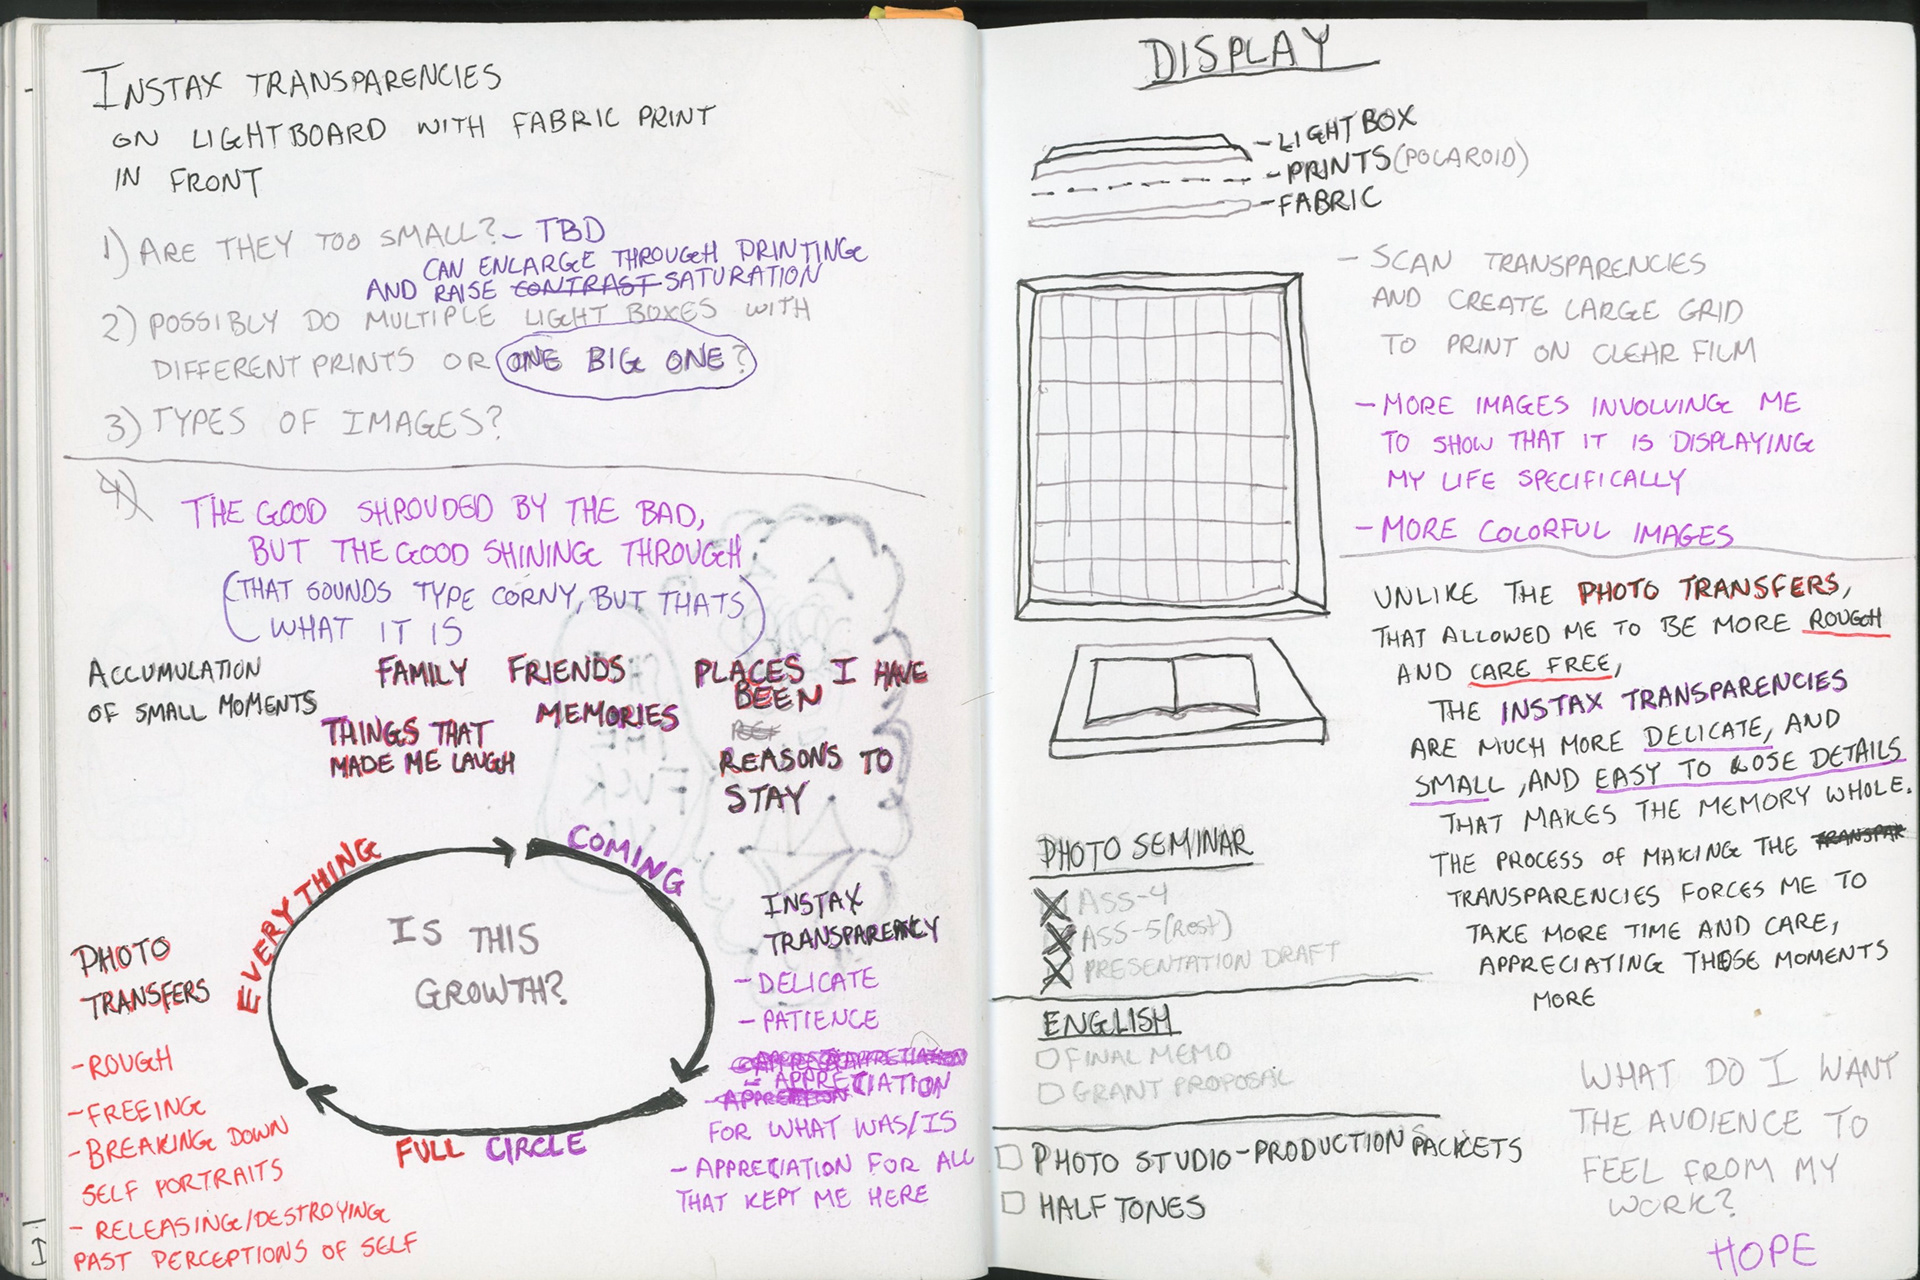 INSTAX TRANSPARENCIES
ON LIGHTBOARD WITH FABRIC PRINT
IN FRONT
1) ARE THEY TOO SMALL? - TBD
CAN ENLARGE THROUGH PRINTING
AND RAISE CONTRAST SATURATION
2) POSSIBLY DO MULTIPLE LIGHT BOXES WITH
DIFFERENT PRINTS OR ONE BIG ONE?
3) TYPES OF IMAGES?
4)
THE GOOD SHROUDED BY THE BAD,
BUT THE GOOD SHINING THROUGH
(THAT SOUNDS TYPE CORNY, BUT THATS
WHAT IT IS)
ACCUMULATION
OF SMALL MOMENTS
FAMILY FRIENDS
THINGS THAT
MADE ME LAUGH
MEMORIES
PLACES I HAVE
BEEN
REASONS TO
STAY
EVERYTHING
COMING
FULL CIRCLE
IS THIS
GROWTH?
PHOTO
TRANSFERS
- ROUGH
- FREEING
- BREAKING DOWN
SELF PORTRAITS
- RELEASING/DESTROYING
PAST PERCEPTIONS OF SELF
INSTAX
TRANSPARENCY
- DELICATE
- PATIENCE
- APPRECIATION
FOR WHAT WAS/IS
- APPRECIATION FOR ALL
THAT KEPT ME HERE
DISPLAY
- LIGHTBOX
- PRINTS (POLAROID)
- FABRIC
- SCAN TRANSPARENCIES
AND CREATE LARGE GRID
TO PRINT ON CLEAR FILM
- MORE IMAGES INVOLVING ME
TO SHOW THAT IT IS DISPLAYING
MY LIFE SPECIFICALLY
- MORE COLORFUL IMAGES
UNLIKE THE PHOTO TRANSFERS,
THAT ALLOWED ME TO BE MORE ROUGH
AND CARE FREE,
THE INSTAX TRANSPARENCIES
ARE MUCH MORE DELICATE, AND
SMALL, AND EASY TO LOSE DETAILS
THAT MAKES THE MEMORY WHOLE.
THE PROCESS OF MAKING THE TRANSPAR
TRANSPARENCIES FORCES ME TO
TAKE MORE TIME AND CARE,
APPRECIATING THOSE MOMENTS
MORE
PHOTO SEMINAR
ASS-4
ASS-5 (Rest)
PRESENTATION DRAFT
ENGLISH
FINAL MEMO
GRANT PROPOSAL
PHOTO STUDIO - PRODUCTION PACKETS
HALF TONES
WHAT DO I WANT
THE AUDIENCE TO
FEEL FROM MY
WORK?
HOPE